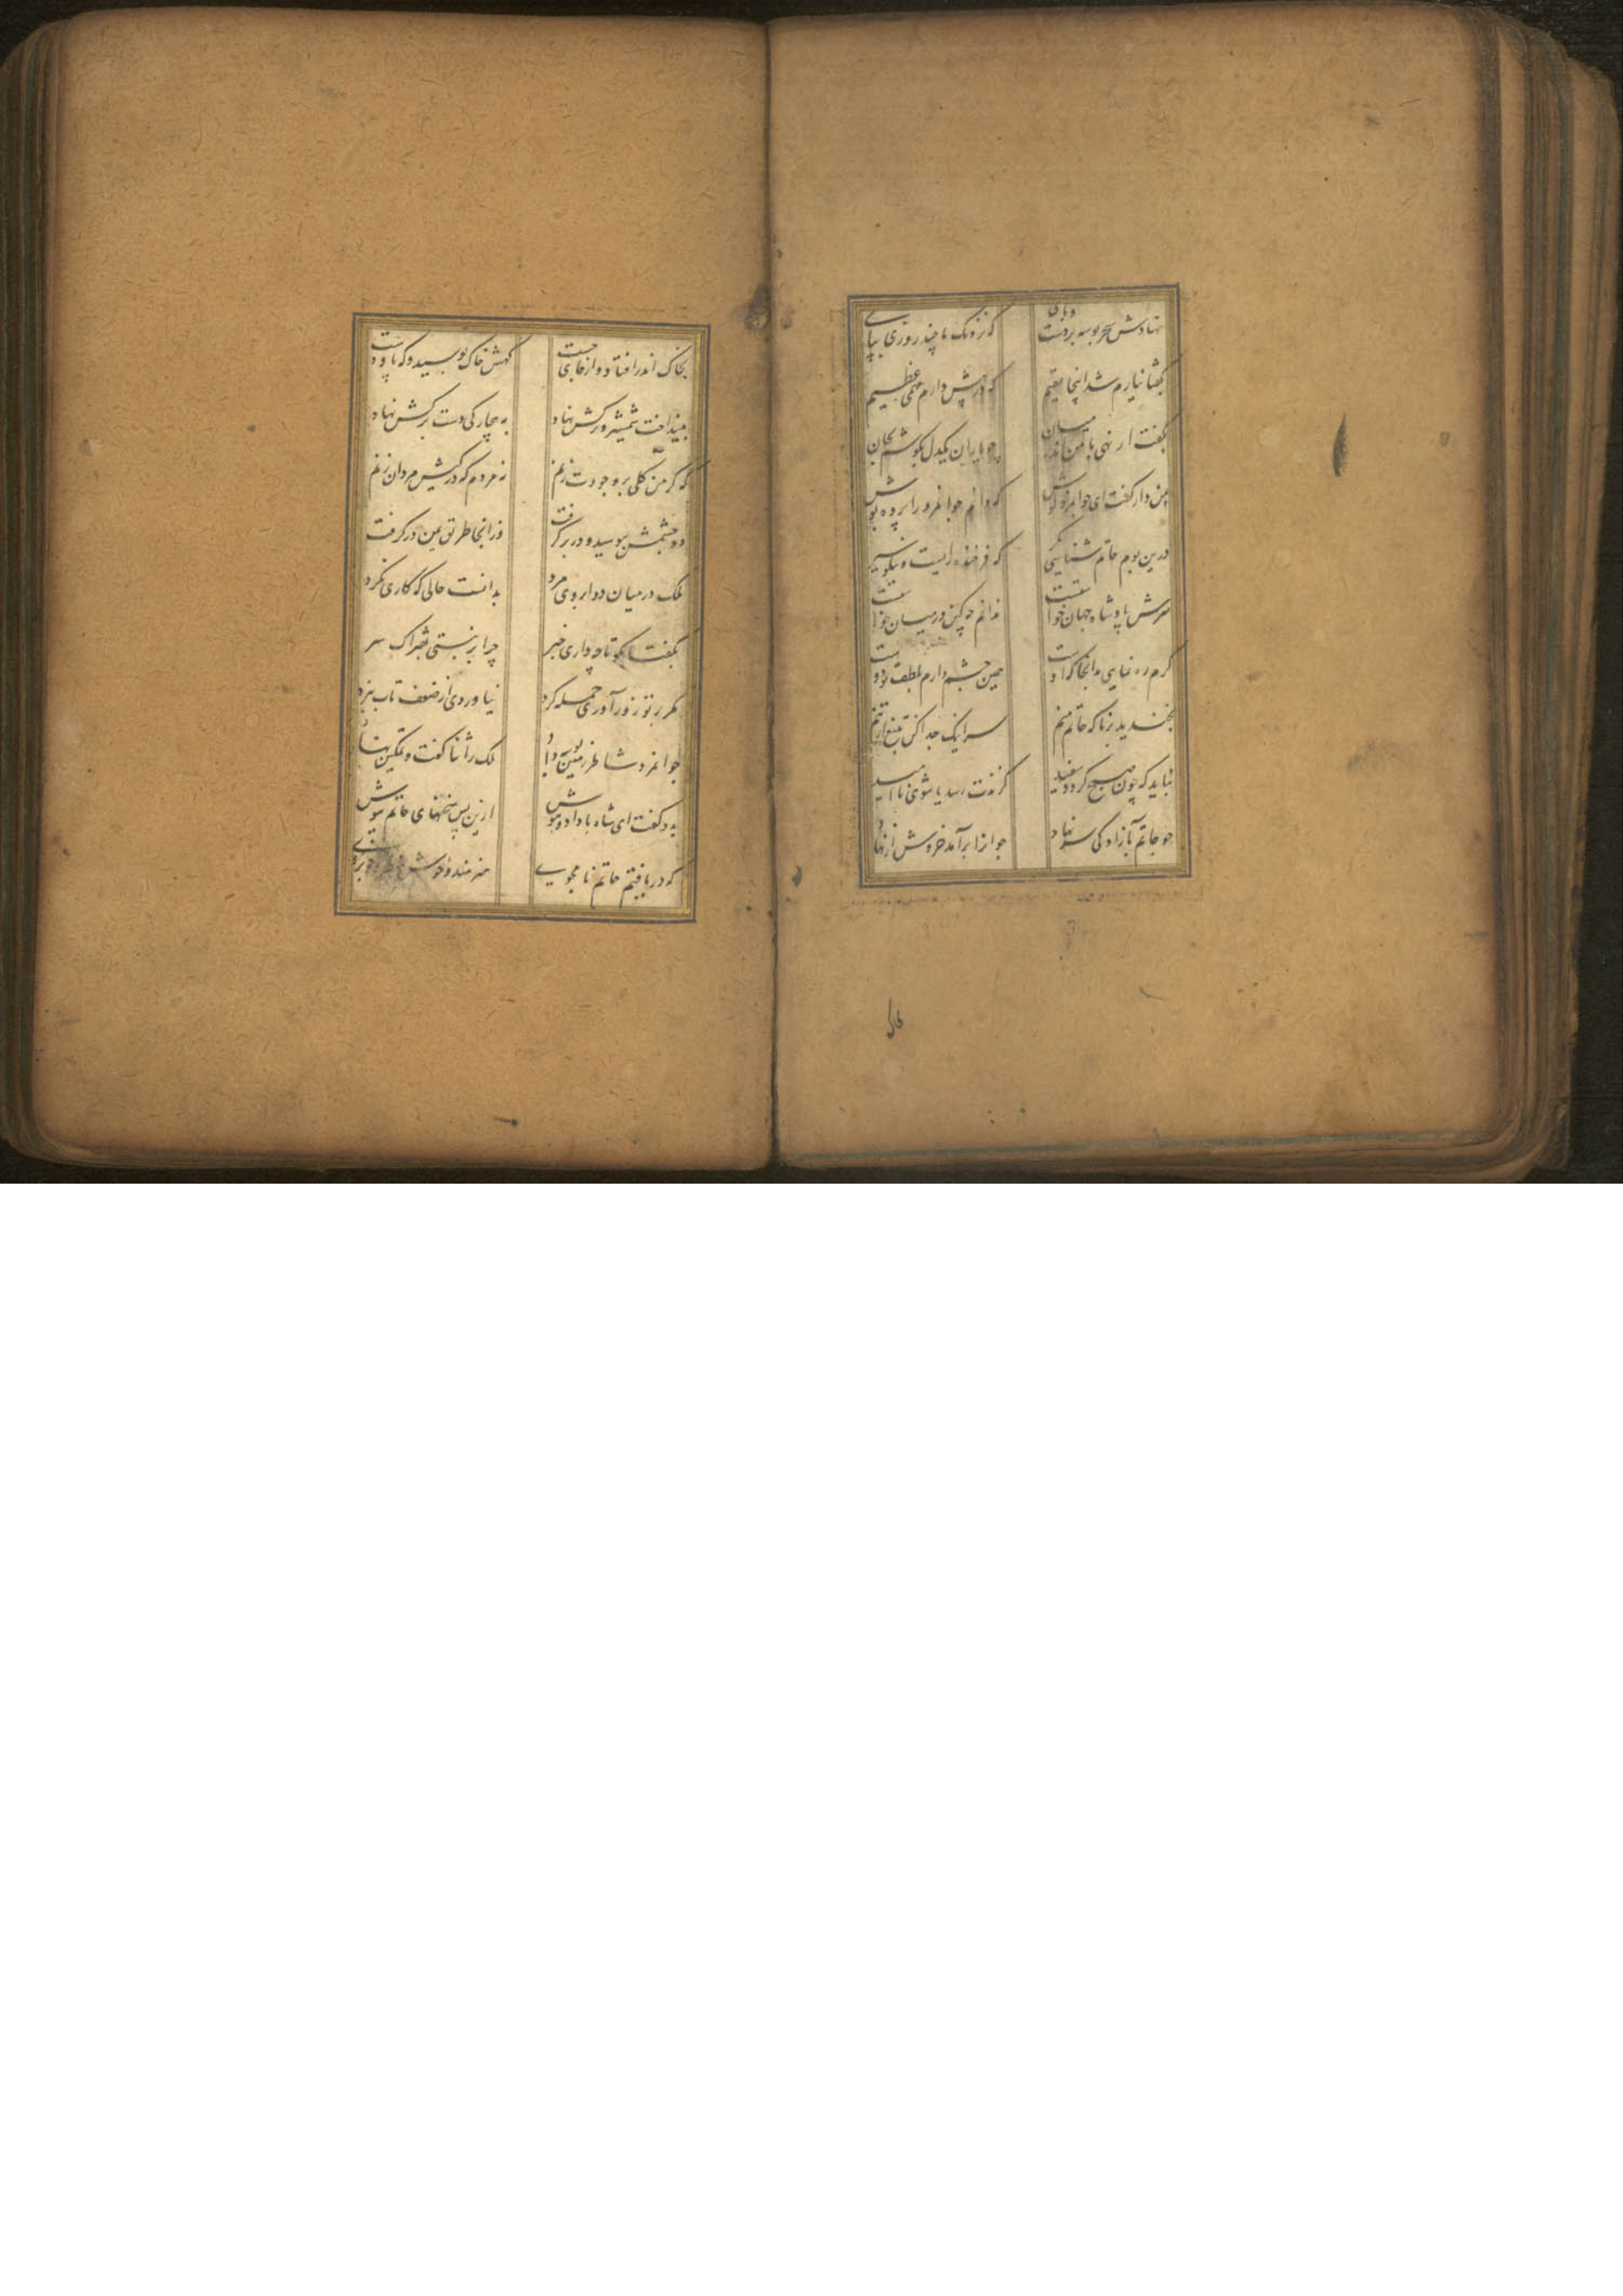 نهادش سحر بوسه بر دست و پای که نزدیک ما چند روزی بپای
بگفتا نیارم شد اینجا مقیم که در پیش دارم مهمی عظیم
بگفت ار نهی با من اندر میان چو یاران یکدل بکوشم بجان
بمن دار گفت ای جوانمرد گوش که دانم جوانمرد را پرده پوش
درین بوم حاتم شناسی مگر که فرخنده رایست و نیکو سیر
سرش پادشاه جهان خواستست ندانم چه کین در میان خاستست
گرم ره نمایی بدانجا که اوست همین چشم دارم بلطف تو دوست
بخندید برنا که حاتم منم سر اینک جدا کن بتیغ از تنم
نباید که چون صبح گردد سفید گزندت رسد یا شوی ناامید
چو حاتم بآزادگی سر نهاد جوانرا برآمد خروش از نهاد
بخاک اندر افتاد و از جای جست گهش خاک بوسید و گه پا و دست
بینداخت شمشیر و ترکش نهاد به چارگی دست بر کش نهاد
که گر من گلی بر وجودت زنم نه مردم که در کیش مردان زنم
دو چشمش ببوسید و در بر گرفت وز انجا طریق یمن در گرفت
ملک در میان دو ابروی مرد بدانست حالی که کاری نکرد
بگفتا بگو تا چه داری خبر چرا بر نبستی بفتراک سر
مگر بر تو زورآوری حمله کرد نیاوردی از ضعف تاب نبرد
جوانمرد شاطر زمین بوسه داد ملک را ثنا گفت و تمکین نهاد
بدو گفت ای شاه با داد و هوش ازین پس سخنهای حاتم نیوش
که دریافتم حاتم نامجوی هنرمند و خوش خوبروی